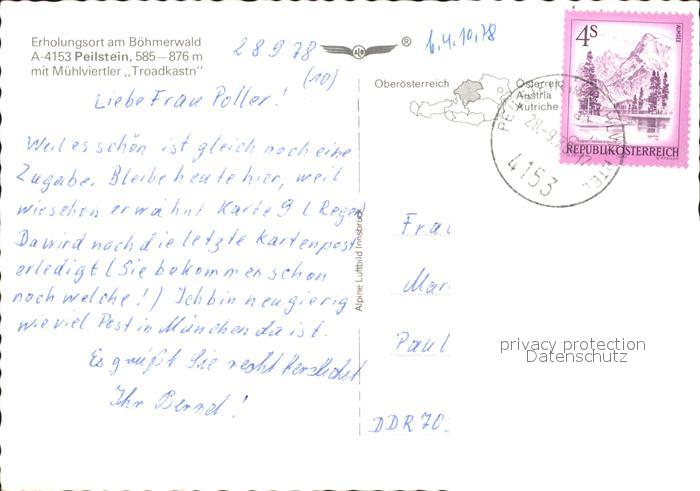 Erholungsort am Böhmerwald
A-4153 Peilstein, 585—876 m
mit Mühlviertler „Troadkastn"
28 9 78
(10)
Liebe Frau Poller!
Weil es schön ist gleich noch eine
Zugabe. Bleibe heute hier, weil
wie schon erwähnt Karte 9 (Regen)
Da wird noch die letzte Kartenpost
erledigt (Sie bekommen schon
noch welche!) Ich bin neugierig
wie viel Post in München da ist.
Es grüßt Sie recht herzlichst
Ihr Bernd!
Alpine Luftbild Innsbruck
®
6.4.10.78
Oberösterreich
Österreich
Austria
Autriche
4S
ALMSEE
REPUBLIK ÖSTERREICH
28.-9.
4153
Frau
Mar
Paul
DDR 70
privacy protection
Datenschutz